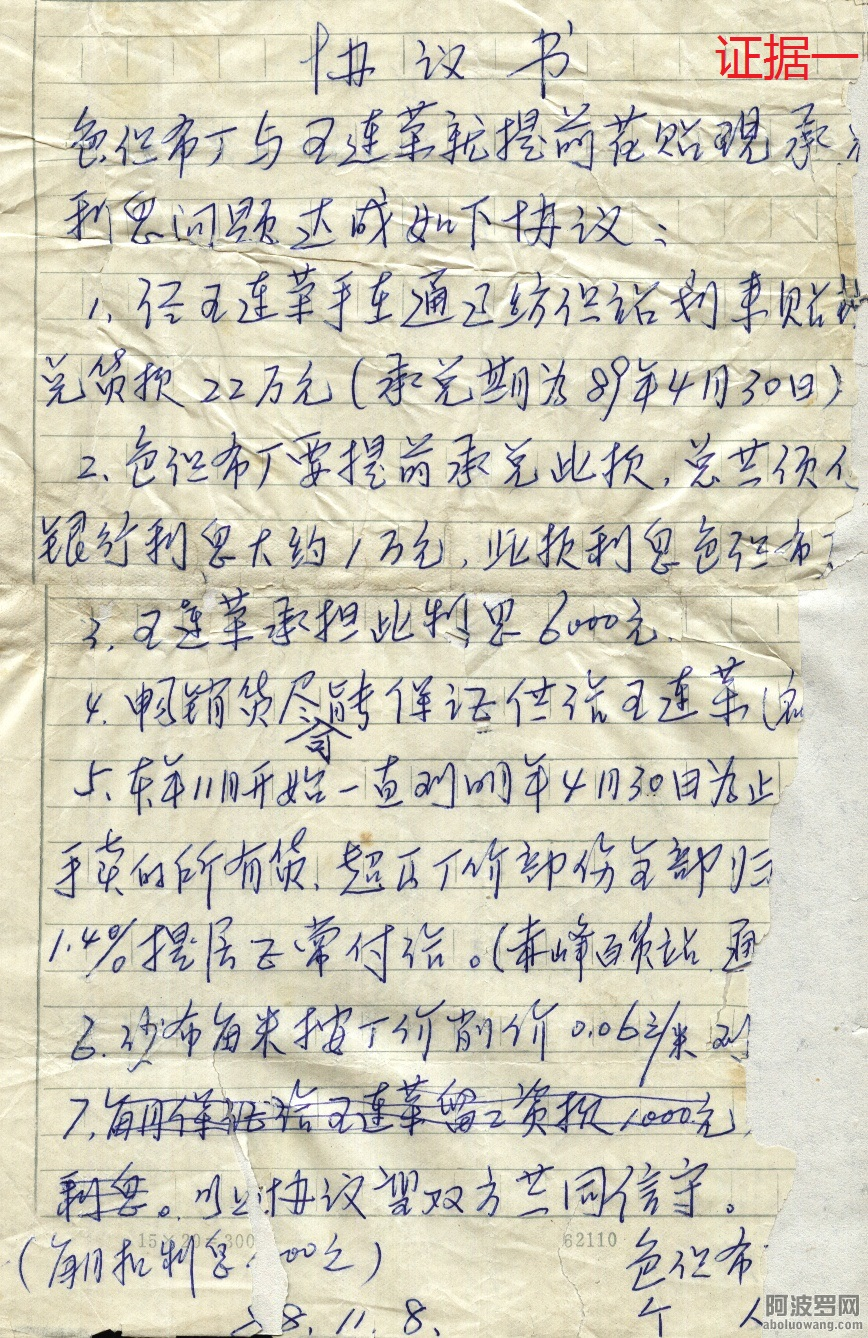 证据一
协议书
色织布丁与王连荣就提前花贴现承
利息问题达成如下协议：
1、经王连荣手在通辽纺织站利来贴
兑货损22万元(承兑期为89年4月30日)
2、色织布厂要提前承兑此损,总共须付
银行利息大约1万元,此损利息色织布
3、王连荣承担此利息6000元.
4、畅销货尽可能保证供给王连荣
5、本年11月开始一直到明年4月30日为止
手卖的所有货,超正丁价部份全部归
1.4%提层正常付给。(赤峰百货站 通
6、沙布每米按丁价削价0.06元/米
7、每月保证给王连荣留工资损1000元,
利息。以上协议望双方共同信守。
15×20=300
62110
(每月扣利息 00元)
色织布
8.11.8.
个 人
阿波罗网
aboluowang.com